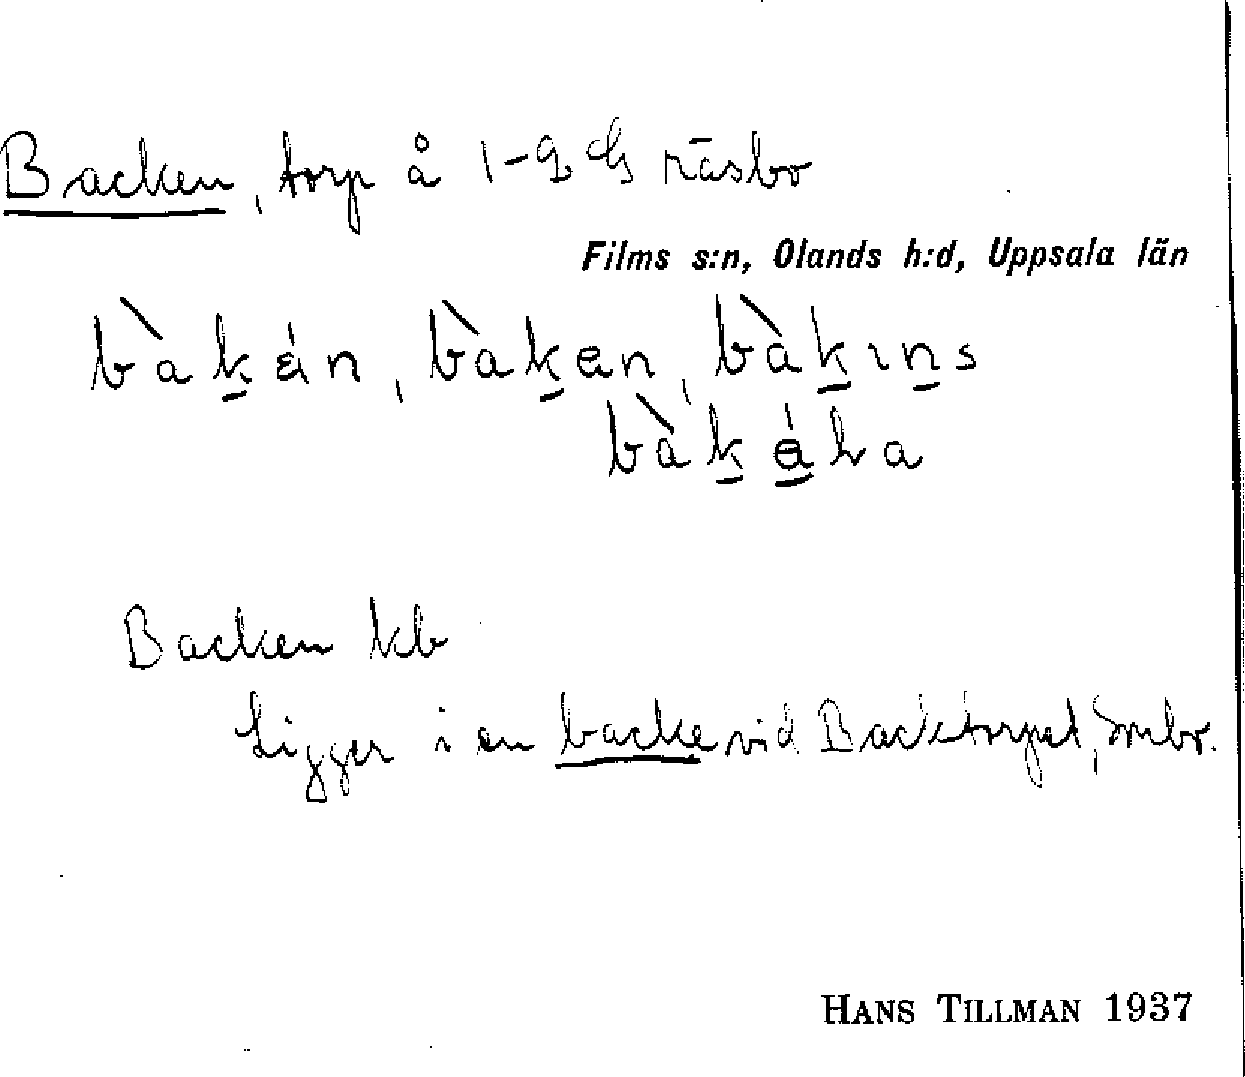 Backen, torp å 1-2 Gräsbo
Films s:n, Olands h:d, Uppsala län
bàk̠án, bàk̠an, bàk̠ın̠s
bàk̠a̠ha
Backen kb
Ligger i en backe vid Backtorpet, Smbo.
HANS TILLMAN 1937